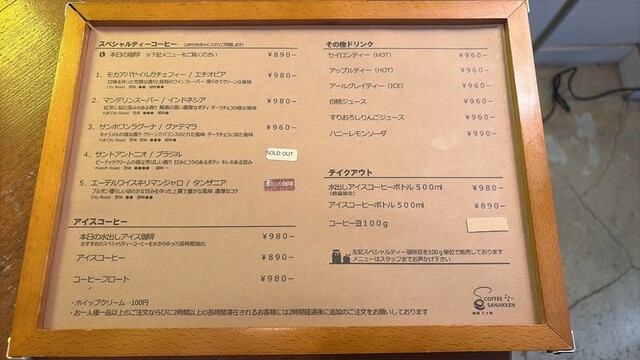 スペシャルティーコーヒー
本日の珈琲 ※下記メニューをご覧ください ¥890-
1. モカアバヤイルガチェフィー / エチオピア ¥980-
City Roast
2. マンデリンスーパー / インドネシア ¥980-
Full City Roast
3. サンホワンラグーナ / グァテマラ ¥960-
Full City Roast
4. サントアントニオ / ブラジル SOLD OUT
French Roast
5. エーデルワイスキリマンジャロ / タンザニア 本日の珈琲
City Roast
アイスコーヒー
本日の水出しアイス珈琲 ¥980-
おすすめのスペシャリティコーヒーを水からゆっくり長時間抽出
アイスコーヒー ¥890-
コーヒーフロート ¥980-
・ホイップクリーム…100円
・お一人様一品以上のご注文ならびに2時間以上の長時間滞在されるお客様には2時間経過後に追加のご注文をお願いしております
その他ドリンク
セイロンティー (HOT) ¥960-
アップルティー (HOT) ¥960-
アールグレイティー (ICE) ¥960-
白桃ジュース ¥960-
すりおろしりんごジュース ¥960-
ハニーレモンソーダ ¥990-
テイクアウト
水出しアイスコーヒーボトル 500ml ¥980-
(数量限定)
アイスコーヒーボトル 500ml ¥890-
コーヒー豆100g
左記スペシャルティー珈琲豆を100g単位で販売しております
メニューはスタッフまでお声かけ下さい
COFFEE
SANJIKKEN